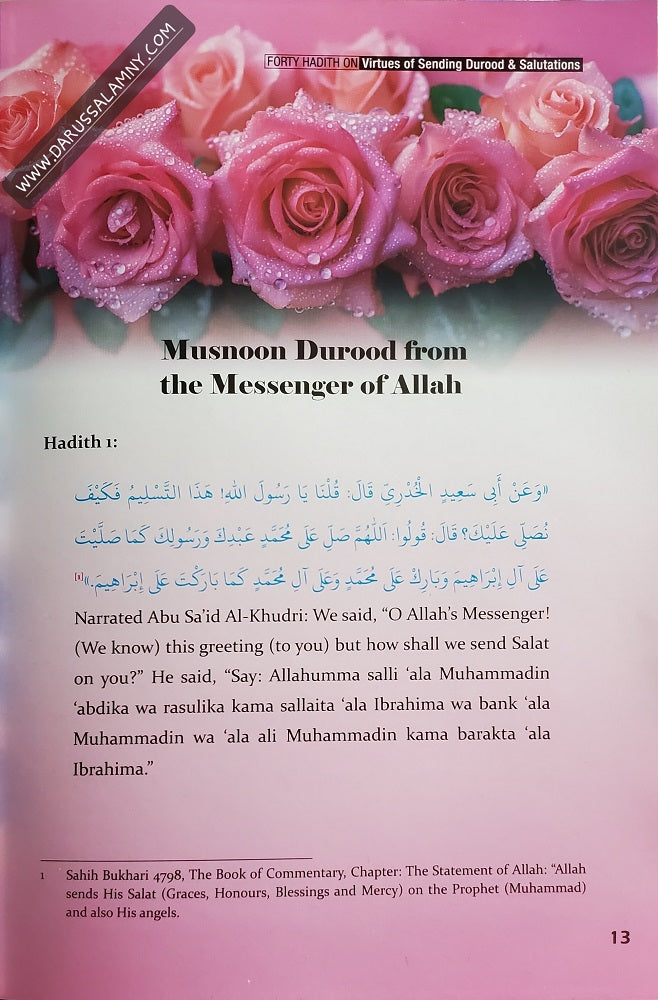 WWW.DARUSSALAMNY.COM
FORTY HADITH ON Virtues of Sending Durood & Salutations
Musnoon Durood from
the Messenger of Allah
Hadith 1:
«وَعَنْ أَبِي سَعِيدٍ الْخُدْرِيِّ قَالَ: قُلْنَا يَا رَسُولَ اللهِ! هَذَا التَّسْلِيمُ فَكَيْفَ
نُصَلِّي عَلَيْكَ؟ قَالَ: قُولُوا: اَللّٰهُمَّ صَلِّ عَلَى مُحَمَّدٍ عَبْدِكَ وَرَسُولِكَ كَمَا صَلَّيْتَ
عَلَى آلِ إِبْرَاهِيمَ وَبَارِكْ عَلَى مُحَمَّدٍ وَعَلَى آلِ مُحَمَّدٍ كَمَا بَارَكْتَ عَلَى إِبْرَاهِيمَ.»[1]
Narrated Abu Sa'id Al-Khudri: We said, “O Allah's Messenger!
(We know) this greeting (to you) but how shall we send Salat
on you?” He said, “Say: Allahumma salli ‘ala Muhammadin
‘abdika wa rasulika kama sallaita ‘ala Ibrahima wa bank ‘ala
Muhammadin wa ‘ala ali Muhammadin kama barakta ‘ala
Ibrahima.”
1 Sahih Bukhari 4798, The Book of Commentary, Chapter: The Statement of Allah: “Allah
sends His Salat (Graces, Honours, Blessings and Mercy) on the Prophet (Muhammad)
and also His angels.
13